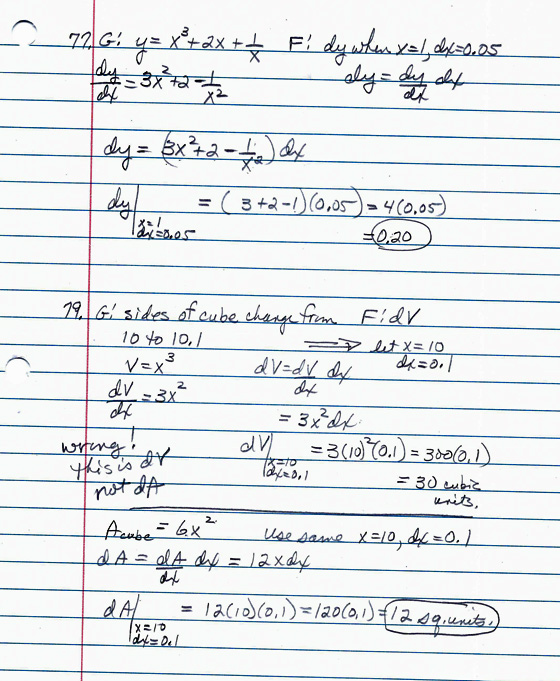 77. G: y = x³ + 2x + 1/x F: dy when x=1, dx=0.05
dy/dx = 3x² + 2 - 1/x² dy = dy/dx dx
dy = (3x² + 2 - 1/x²) dx
dy | x=1 dx=0.05 = (3+2-1)(0.05) = 4(0.05)
= 0.20
79. G: sides of cube change from F: dV
10 to 10.1 ⟹ let x = 10
V = x³ dV = dV/dx dx dx = 0.1
dV/dx = 3x² = 3x² dx
wrong! dV | x=10 dx=0.1 = 3(10)²(0.1) = 300(0.1)
this is dV = 30 cubic
not dA units.
A cube = 6x² use same x=10, dx=0.1
dA = dA/dx dx = 12x dx
dA | x=10 dx=0.1 = 12(10)(0.1) = 120(0.1) = 12 sq. units.